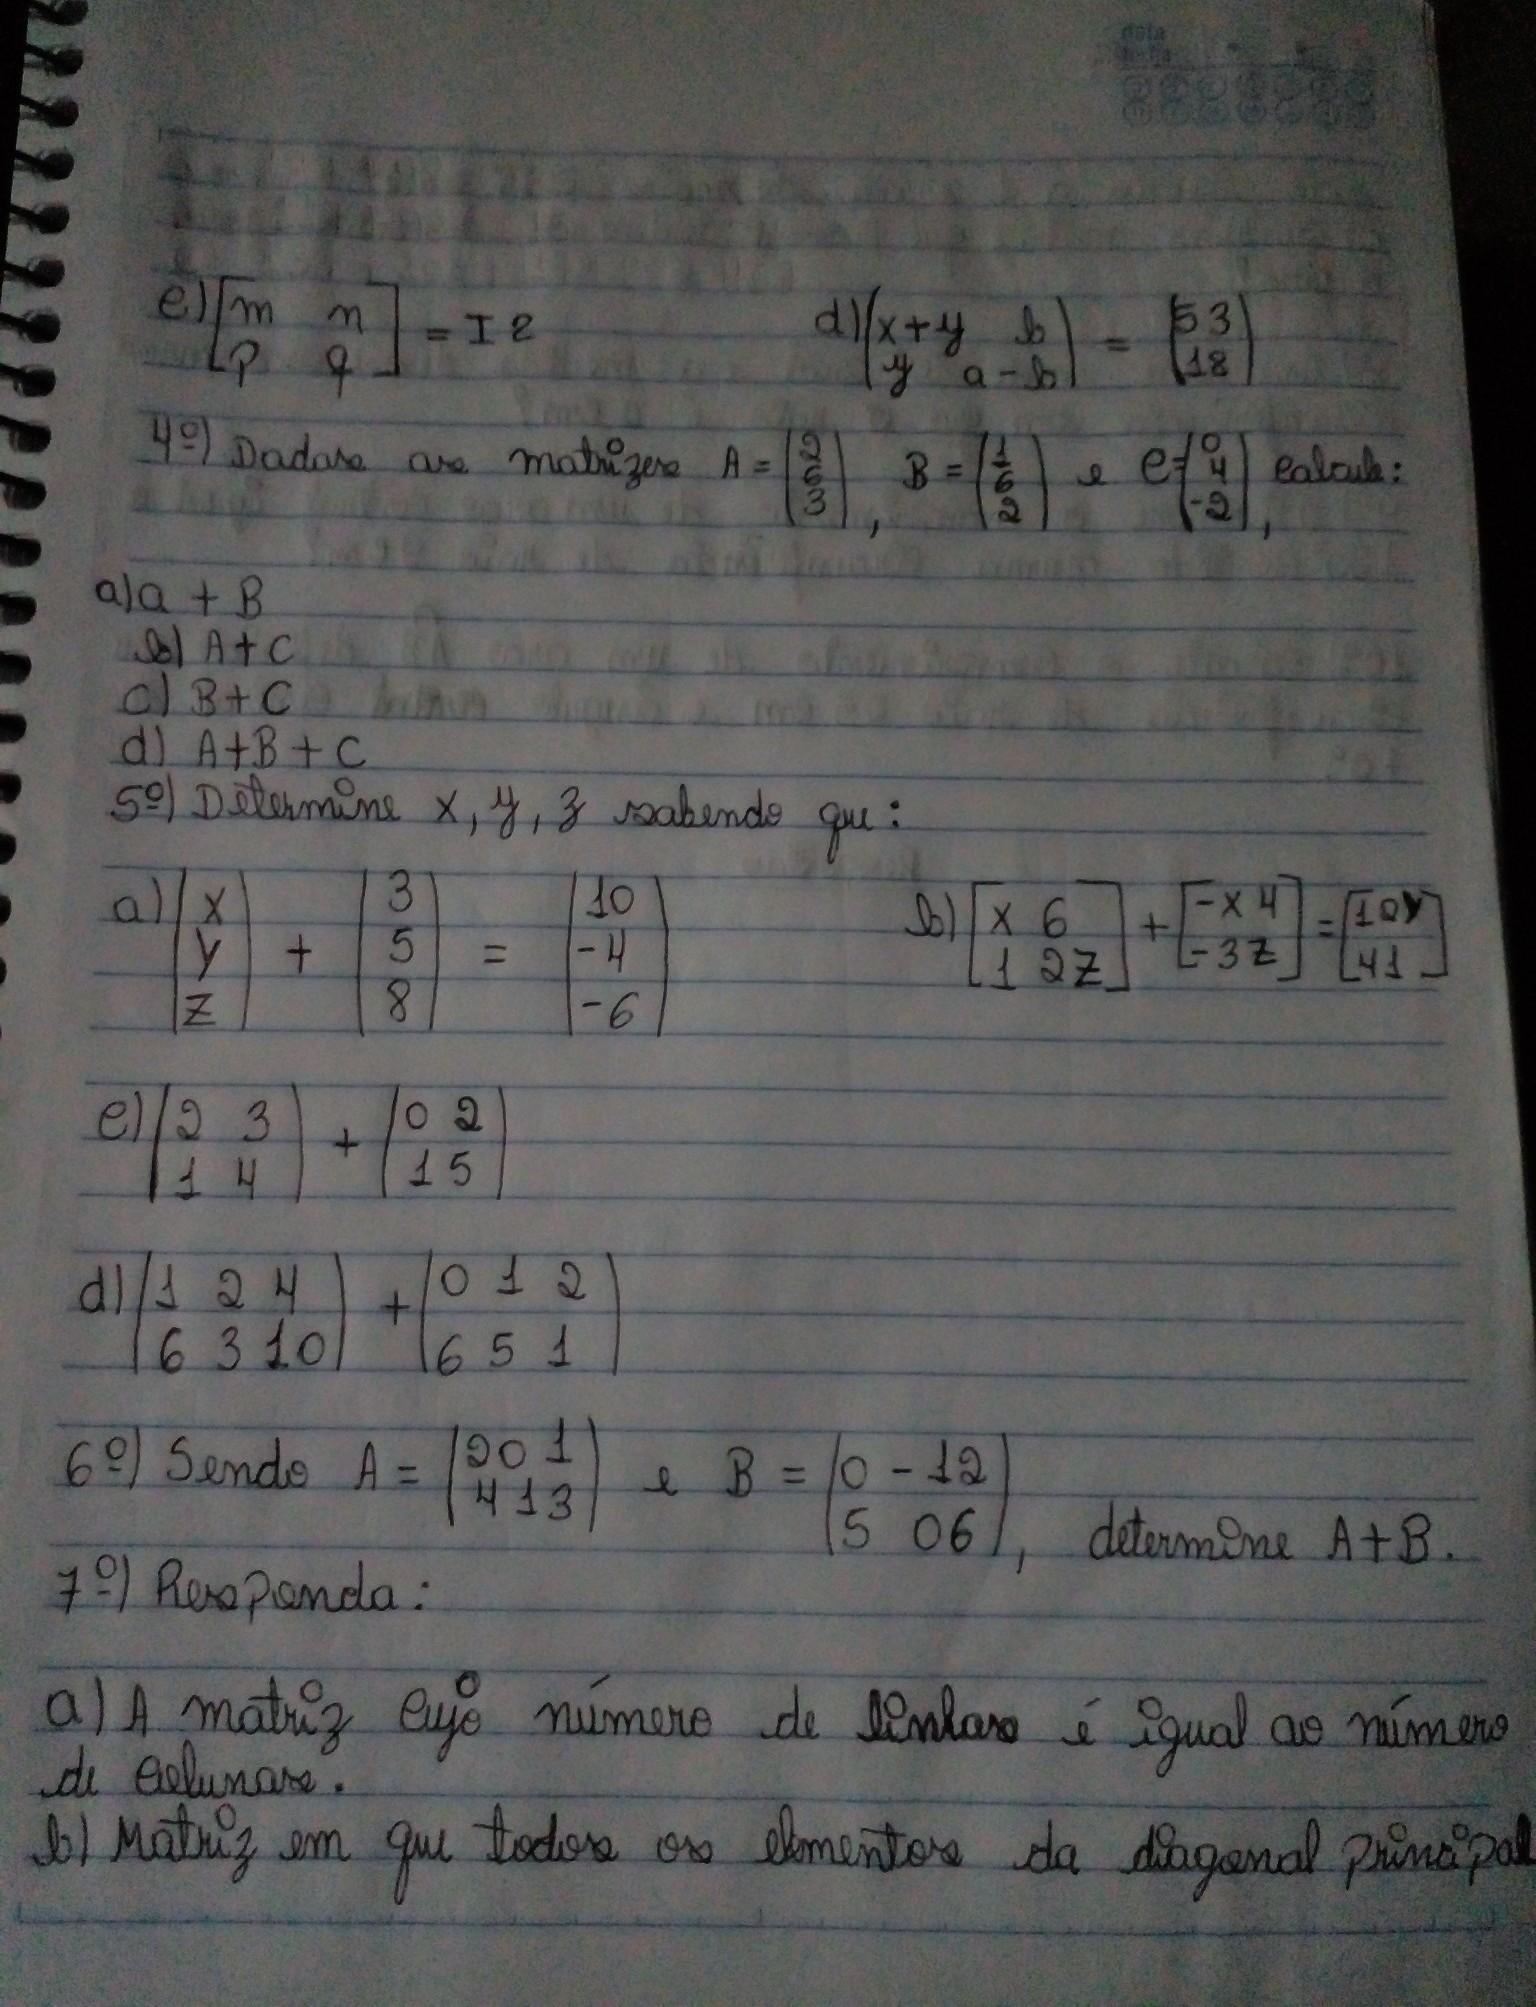 c) [m n] = I2 d) (x+y b) = (5 3)
[p q] (y a-b) (1 8)
4º) Dadas as matrizes A = (2 6 3), B = (1 6 2) e C = (0 4 -2), calcule:
a) a + B
b) A+C
c) B+C
d) A+B+C
5º) Determine x, y, z sabendo que:
a) |x| + |3| = |10| b) [x 6] + [-x 4] = [10 y]
|y| |5| |-4| [1 2z] [-3 z] [4 1]
|z| |8| |-6|
c) (2 3) + (0 2)
(1 4) (1 5)
d) (1 2 4) + (0 1 2)
(6 3 10) (6 5 1)
6º) Sendo A = (2 0 1) e B = (0 -1 2)
(4 1 3) (5 0 6), determine A+B.
7º) Responda:
a) A matriz cujo número de linhas é igual ao número
de colunas.
b) Matriz em que todos os elementos da diagonal principal